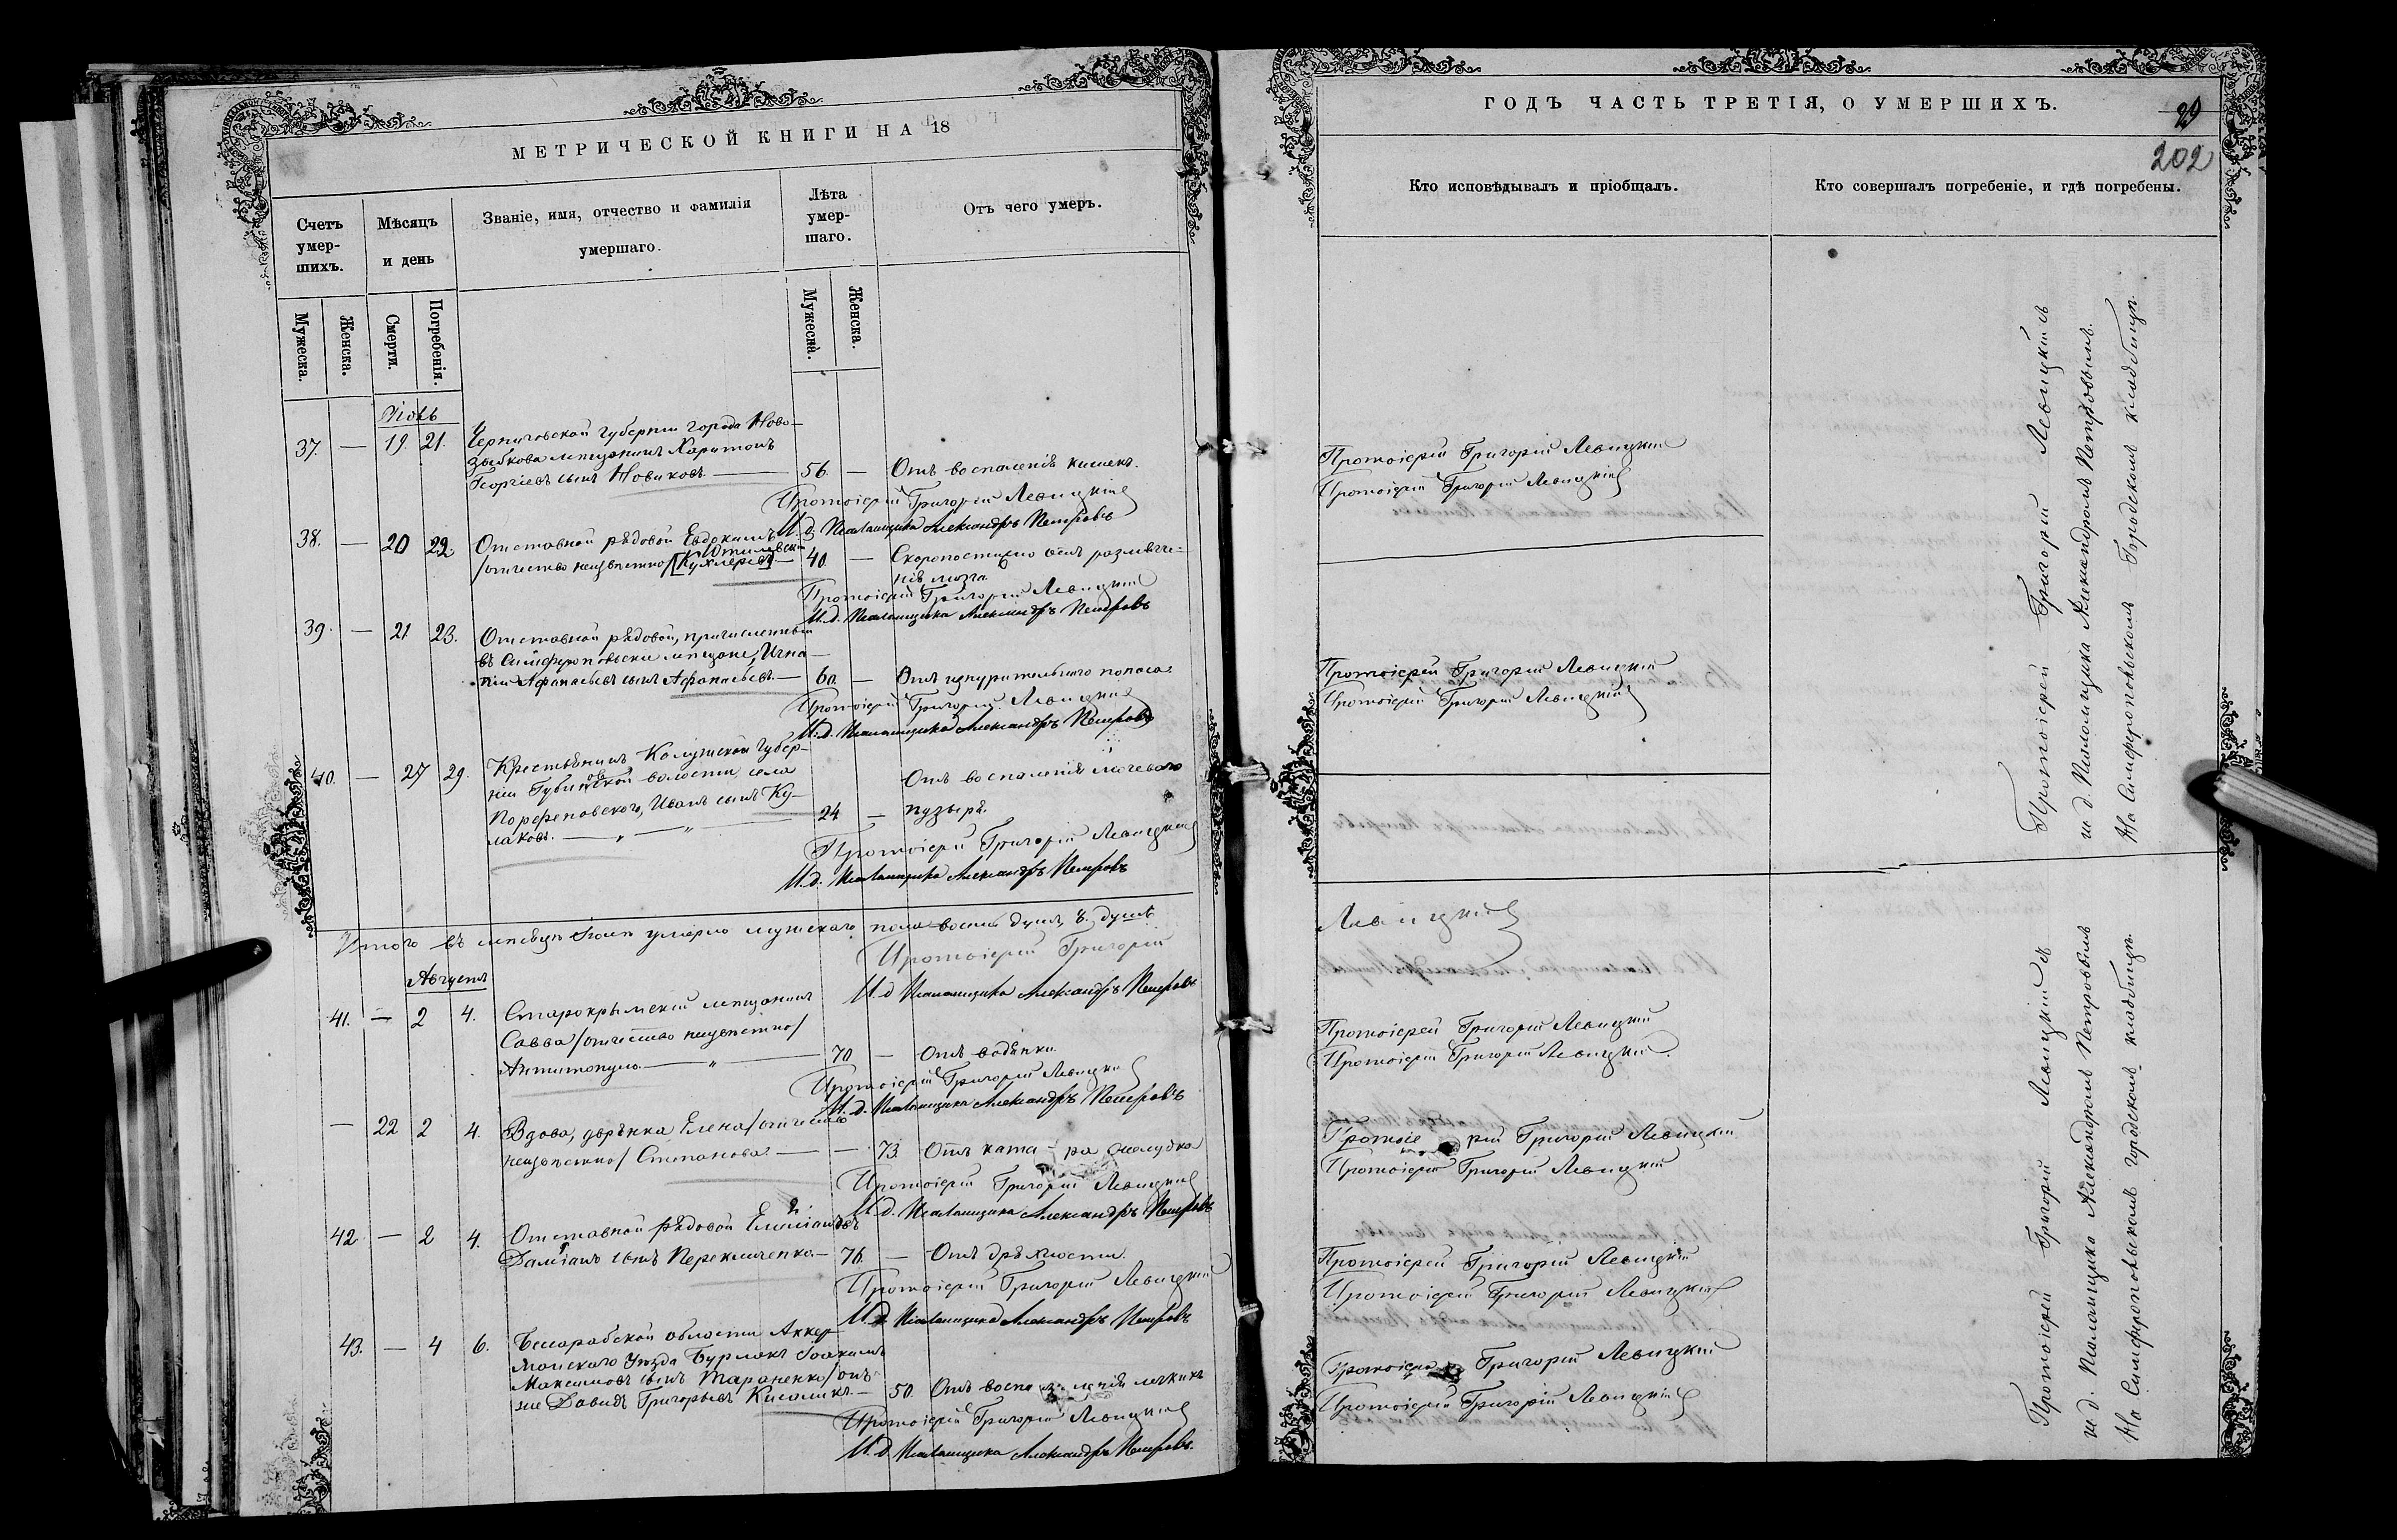 МЕТРИЧЕСКОЙ КНИГИ НА 18
Счетъ умер-шихъ.
Мѣсяцъ и день
Званіе, имя, отчество и фамилія умершаго.
Лѣта умер-шаго.
Отъ чего умеръ.
Мужеска.
Женска.
Смерти.
Погребенія.
Мужеска.
Женска.
Іюль
37. — 19. 21. Черниговской губерніи города Ново-
зыбкова мѣщанинъ Харитонъ
Георгіевъ сынъ Новиковъ — 56. — Отъ воспаленія кишекъ.
Протоіерей Григорій Левицкій
И. д. Псаломщика Александръ Петровъ
38. — 20 22. Отставной рядовой Евдокимъ
/отчество неизвѣстно/ — 40. — Скоропостижно отъ размягче-
нія мозга.
Протоіерей Григорій Левицкій
И. д. Псаломщика Александръ Петровъ
39. — 21. 23. Отставной рядовой, причисленный
въ Симферопольскіе мѣщане, Игна-
тій Афанасьевъ сынъ Афанасьевъ. — 60. — Отъ изнурительнаго поноса.
Протоіерей Григорій Левицкій
И. д. Псаломщика Александръ Петровъ
40. — 27 29. Крестьянинъ Калужской Губер-
ніи волости, села
Порфеновскаго, Иванъ сынъ Ку-
лаковъ. — 24 — Отъ воспаленія мочеваго
пузыря.
Протоіерей Григорій Левицкій
И. д. Псаломщика Александръ Петровъ
Итого въ мѣсяцѣ Іюлѣ умерло мужскаго пола восемь душъ, 8. душъ
Протоіерей Григорій
И. д. Псаломщика Александръ Петровъ
Августъ
41. — 2 4. Старокрымскій мѣщанинъ
Савва /отчество неизвѣстно/
— 70. — Отъ водянки.
Протоіерей Григорій Левицкій
И. д. Псаломщика Александръ Петровъ
— 22 2 4. Вдова, дврянка Елена /отчество
неизвѣстно/ Степанова — — 73. Отъ ката-ра желудка
Протоіерей Григорій Левицкій
И. д. Псаломщика Александръ Петровъ
42 — 2 4. Отставной рядовой
Даміанъ сынъ Перекличенко — 76. — Отъ дряхлости.
Протоіерей Григорій Левицкій
И. д. Псаломщика Александръ Петровъ
43. — 4 6. Бессарабской области Аккер-
манскаго Уѣзда Бурлакъ Іоакимъ
Максимовъ сынъ Тараненко /онъ
же Давидъ Григорьевъ — 50. Отъ воспаленія легкихъ
Протоіерей Григорій Левицкій
И. д. Псаломщика Александръ Петровъ.
ГОДЪ ЧАСТЬ ТРЕТІЯ, О УМЕРШИХЪ.
29
202
Кто исповѣдывалъ и пріобщалъ.
Кто совершалъ погребеніе, и гдѣ погребены.
Протоіерей Григорій Левицкій
Протоіерей Григорій Левицкій
Протоіерей Григорій Левицкій
Протоіерей Григорій Левицкій
Левицкій
Протоіерей Григорій Левицкій
Протоіерей Григорій Левицкій
Протоіерей Григорій Левицкій
Протоіерей Григорій Левицкій
Протоіерей Григорій Левицкій
Протоіерей Григорій Левицкій
Протоіерей Григорій Левицкій
Протоіерей Григорій Левицкій
Протоіерей Григорій Левицкій съ
и. д. Псаломщика Александромъ Петровымъ.
На Симферопольскомъ Городскомъ кладбищѣ.
Протоіерей Григорій Левицкій съ
и. д. Псаломщика Александромъ Петровымъ
На Симферопольскомъ городскомъ кладбищѣ.